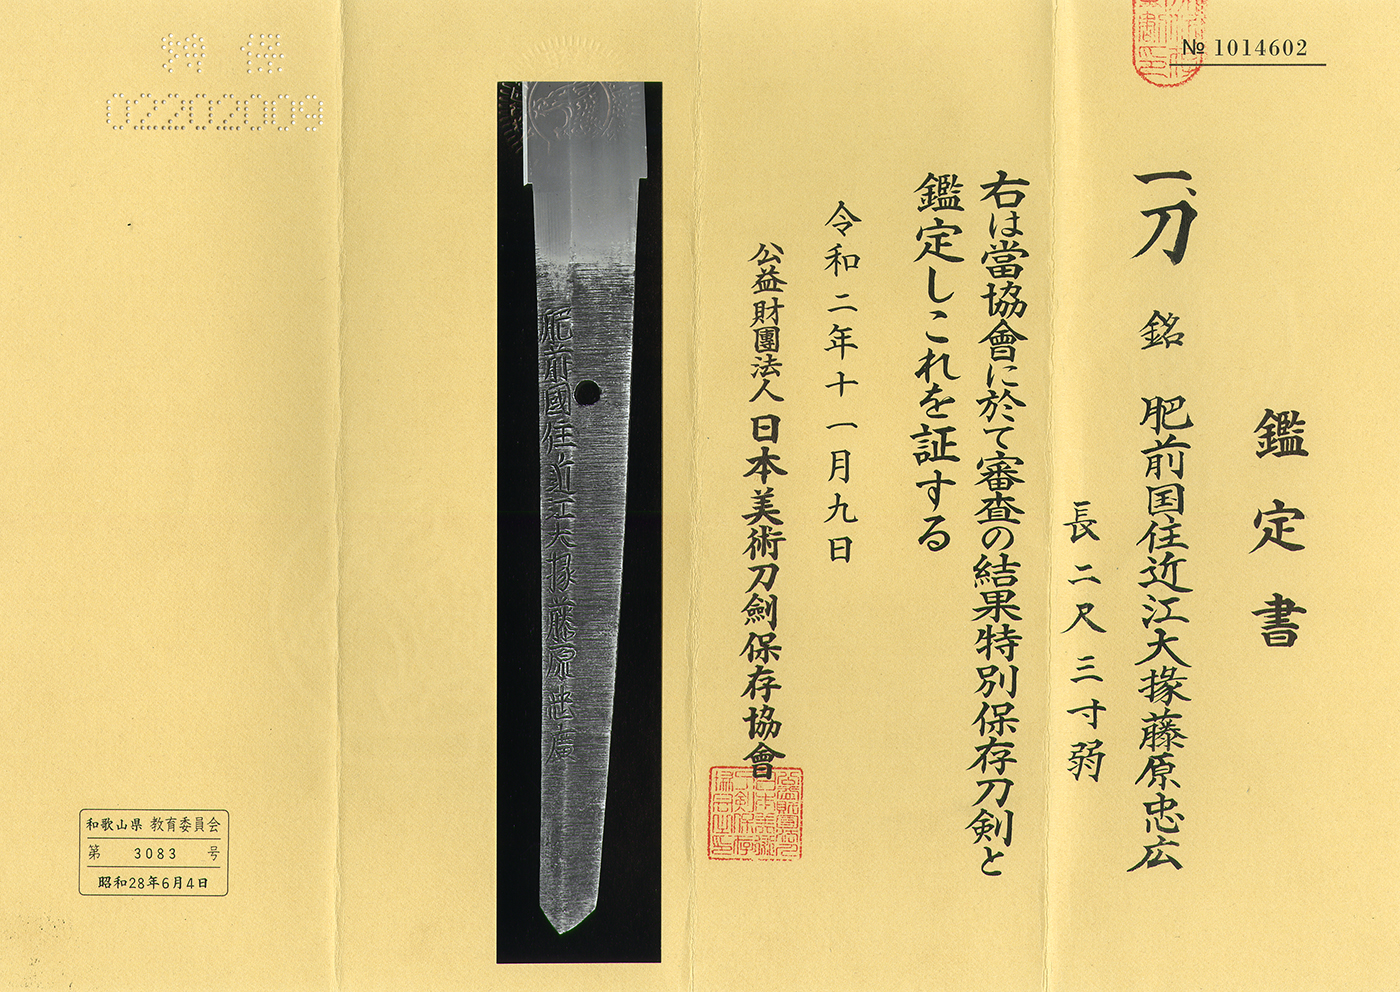 № 1014602
鑑定書
一、刀 銘 肥前国住近江大掾藤原忠広
長二尺三寸弱
右は當協會に於て審査の結果特別保存刀剣と
鑑定しこれを証する
令和二年十一月九日
公益財團法人日本美術刀劍保存協會
肥前國住近江大掾藤原忠廣
特保
02202009
和歌山県 教育委員会
第 3083 号
昭和28年6月4日